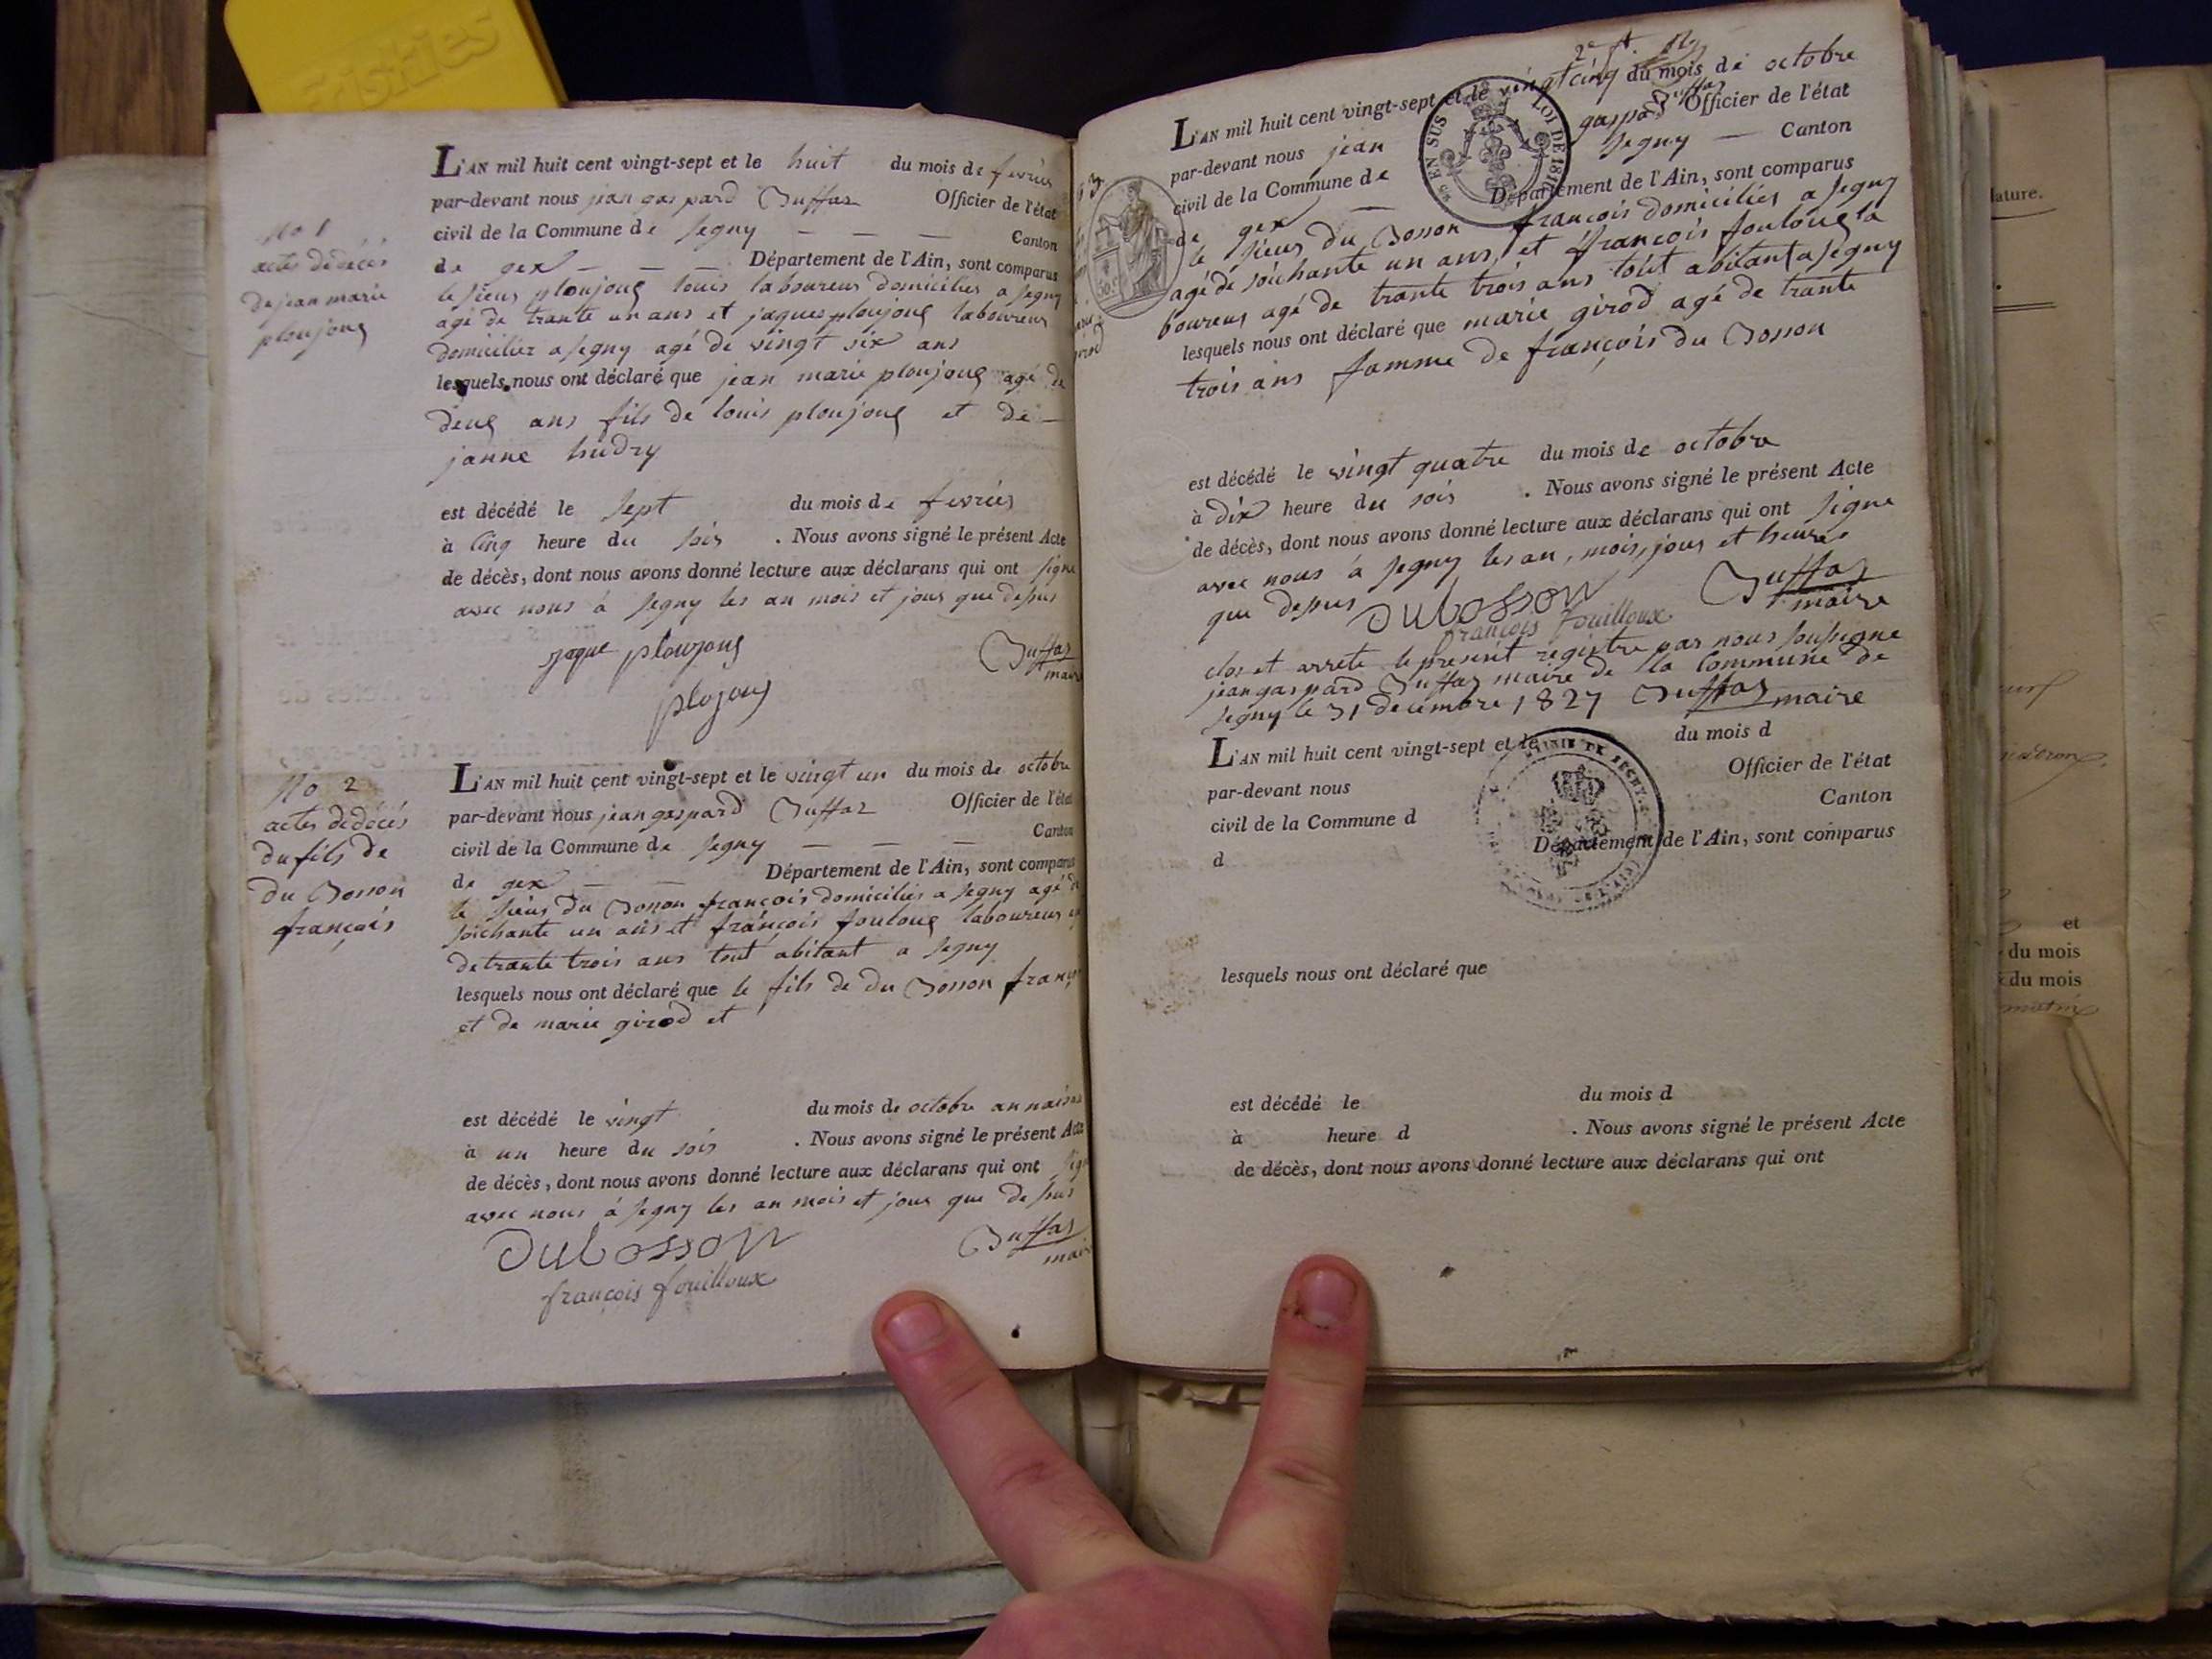 friskies
No 1
actes de décès
de jean marie
ploujoug
L'AN mil huit cent vingt-sept et le huit du mois de fevrier
par-devant nous jean gaspard Buffaz Officier de l'état
civil de la Commune de Segny — — — Canton
de gex — — — Département de l'Ain, sont comparus
le sieur ploujoug louis laboureur domicilier a Segny
agé de trante un ans et jaques ploujoug laboureur
domicilier a Segny agé de vingt six ans
lesquels nous ont déclaré que jean marie ploujoug agé de
deug ans fils de louis ploujoug et de —
janne hudry
est décédé le sept du mois de fevrier
à cinq heure du soir . Nous avons signé le présent Acte
de décès, dont nous avons donné lecture aux déclarans qui ont signe
avec nous à Segny les an mois et jour que depus
jaque ploujoug
Buffaz
maire
plojoug
No 2
actes de décès
du fils de
du Bosson
françois
L'AN mil huit cent vingt-sept et le vingt un du mois de octobre
par-devant nous jean gaspard Buffaz Officier de l'état
civil de la Commune de Segny — — — Canton
de gex — — Département de l'Ain, sont comparus
le sieur du Bosson françois domicilier a Segny agé de
soichante un ans et françois fouloug laboureur
de trante trois ans tout abitant a Segny
lesquels nous ont déclaré que le fils de du Bosson franç
et de marie girod et
est décédé le vingt du mois de octobre an naisan
à un heure du soir . Nous avons signé le présent Acte
de décès, dont nous avons donné lecture aux déclarans qui ont sign
avec nous à Segny les an mois et jour que depus
Dubosson
Buffaz
maire
françois fouilloux
L'AN mil huit cent vingt-sept et le vingt cinq du mois de octobre
par-devant nous jean gaspard Buffaz Officier de l'état
civil de la Commune de Segny — Canton
de gex — Département de l'Ain, sont comparus
le sieur du Bosson francois domicilier a Segny
agé de soichante un ans, et françois fouloug la
boureur agé de trante trois ans tout abitant a Segny
lesquels nous ont déclaré que marie girod agé de trante
trois ans famme de françois du Bosson
EN SUS LOI DE 1816
est décédé le vingt quatre du mois de octobre
à dix heure du soir . Nous avons signé le présent Acte
de décès, dont nous avons donné lecture aux déclarans qui ont signe
avec nous à Segny les an, mois, jour et heure
que depus Dubosson Buffaz
maire
françois fouilloux
clos et arrete le present registre par nous soussigne
jean gaspard Buffaz maire de la Commune de
Segny le 31 decembre 1827 Buffaz maire
L'AN mil huit cent vingt-sept et le du mois d
par-devant nous Officier de l'état
civil de la Commune d Canton
d Département de l'Ain, sont comparus
lesquels nous ont déclaré que
est décédé le du mois d
à heure d . Nous avons signé le présent Acte
de décès, dont nous avons donné lecture aux déclarans qui ont
et
du mois
du mois